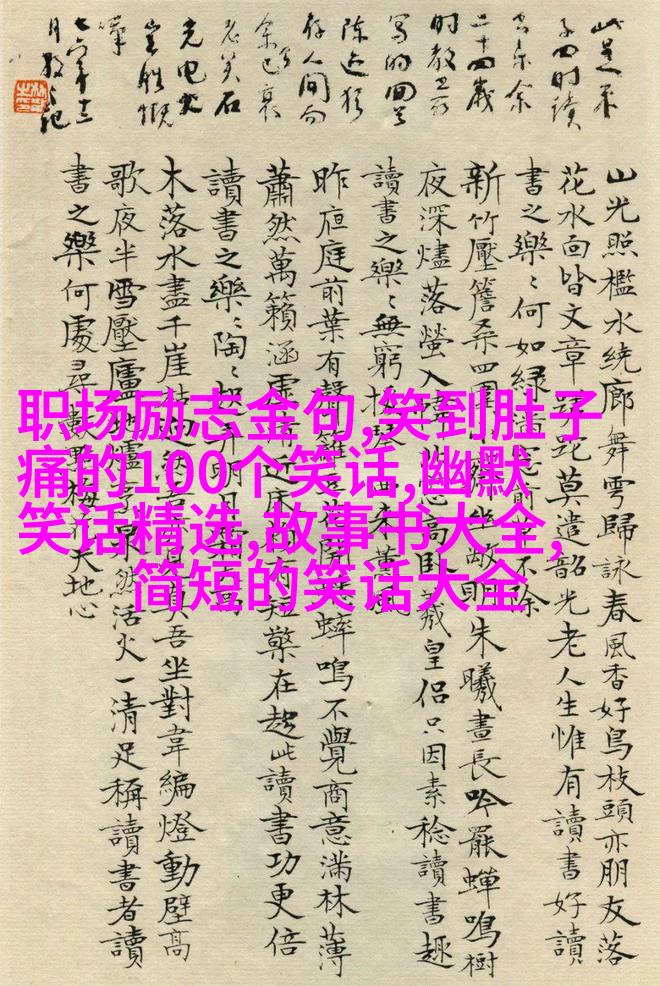 此是
子四时读
书乐余
二十四岁
时教卫
写的回首
陈迹犹
存人间而
余已衰
老矣石
光电火
岂胜慨
嘆
七六年十二
月记
山光照檻水繞廊舞雩歸詠春風香好鳥枝頭亦朋友落
花水面皆文章蹉跎莫遣韶光老人生惟有讀書好讀
書之樂〻何如綠滿窗前草不除
新竹壓簷桑四圍小齋幽敞明朱曦晝長吟罷蟬鳴樹
夜深燼落螢入幃北窗高臥羲皇侣只因素稔讀書趣
讀書之樂〻無窮撥琴一曲來薰風
昨夜庭前葉有聲籬豆花開蟋蟀鳴不覺商意滿林薄
蕭然萬籟涵虛清近床賴有短檠在趁此讀書功更倍
讀書之樂〻陶〻起弄明月霜天高
木落水盡千崖枯迥然吾亦見真吾坐對韋編燈動壁高
歌夜半雪壓廬地爐茶鼎烹活火一清足稱讀書者讀
書之樂何處尋數點梅花天地心
职场励志金句,笑到肚子
痛的100个笑话,幽默
笑话精选,故事书大全,
简短的笑话大全